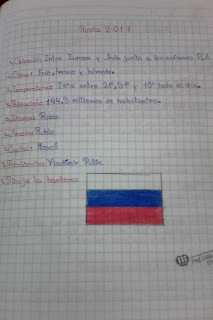 Rusia 2018
Ubicación: Entre Europa y Asia junto a los océanos
Clima: Frío, fresco y húmedo.
Temperatura: Está entre y 10° todo el día.
Población: 144,3 millones de habitantes.
Idioma: Ruso
Moneda: Rublo
Capital: Moscú
Presidente: Vladimir Putin
Dibuja la bandera: